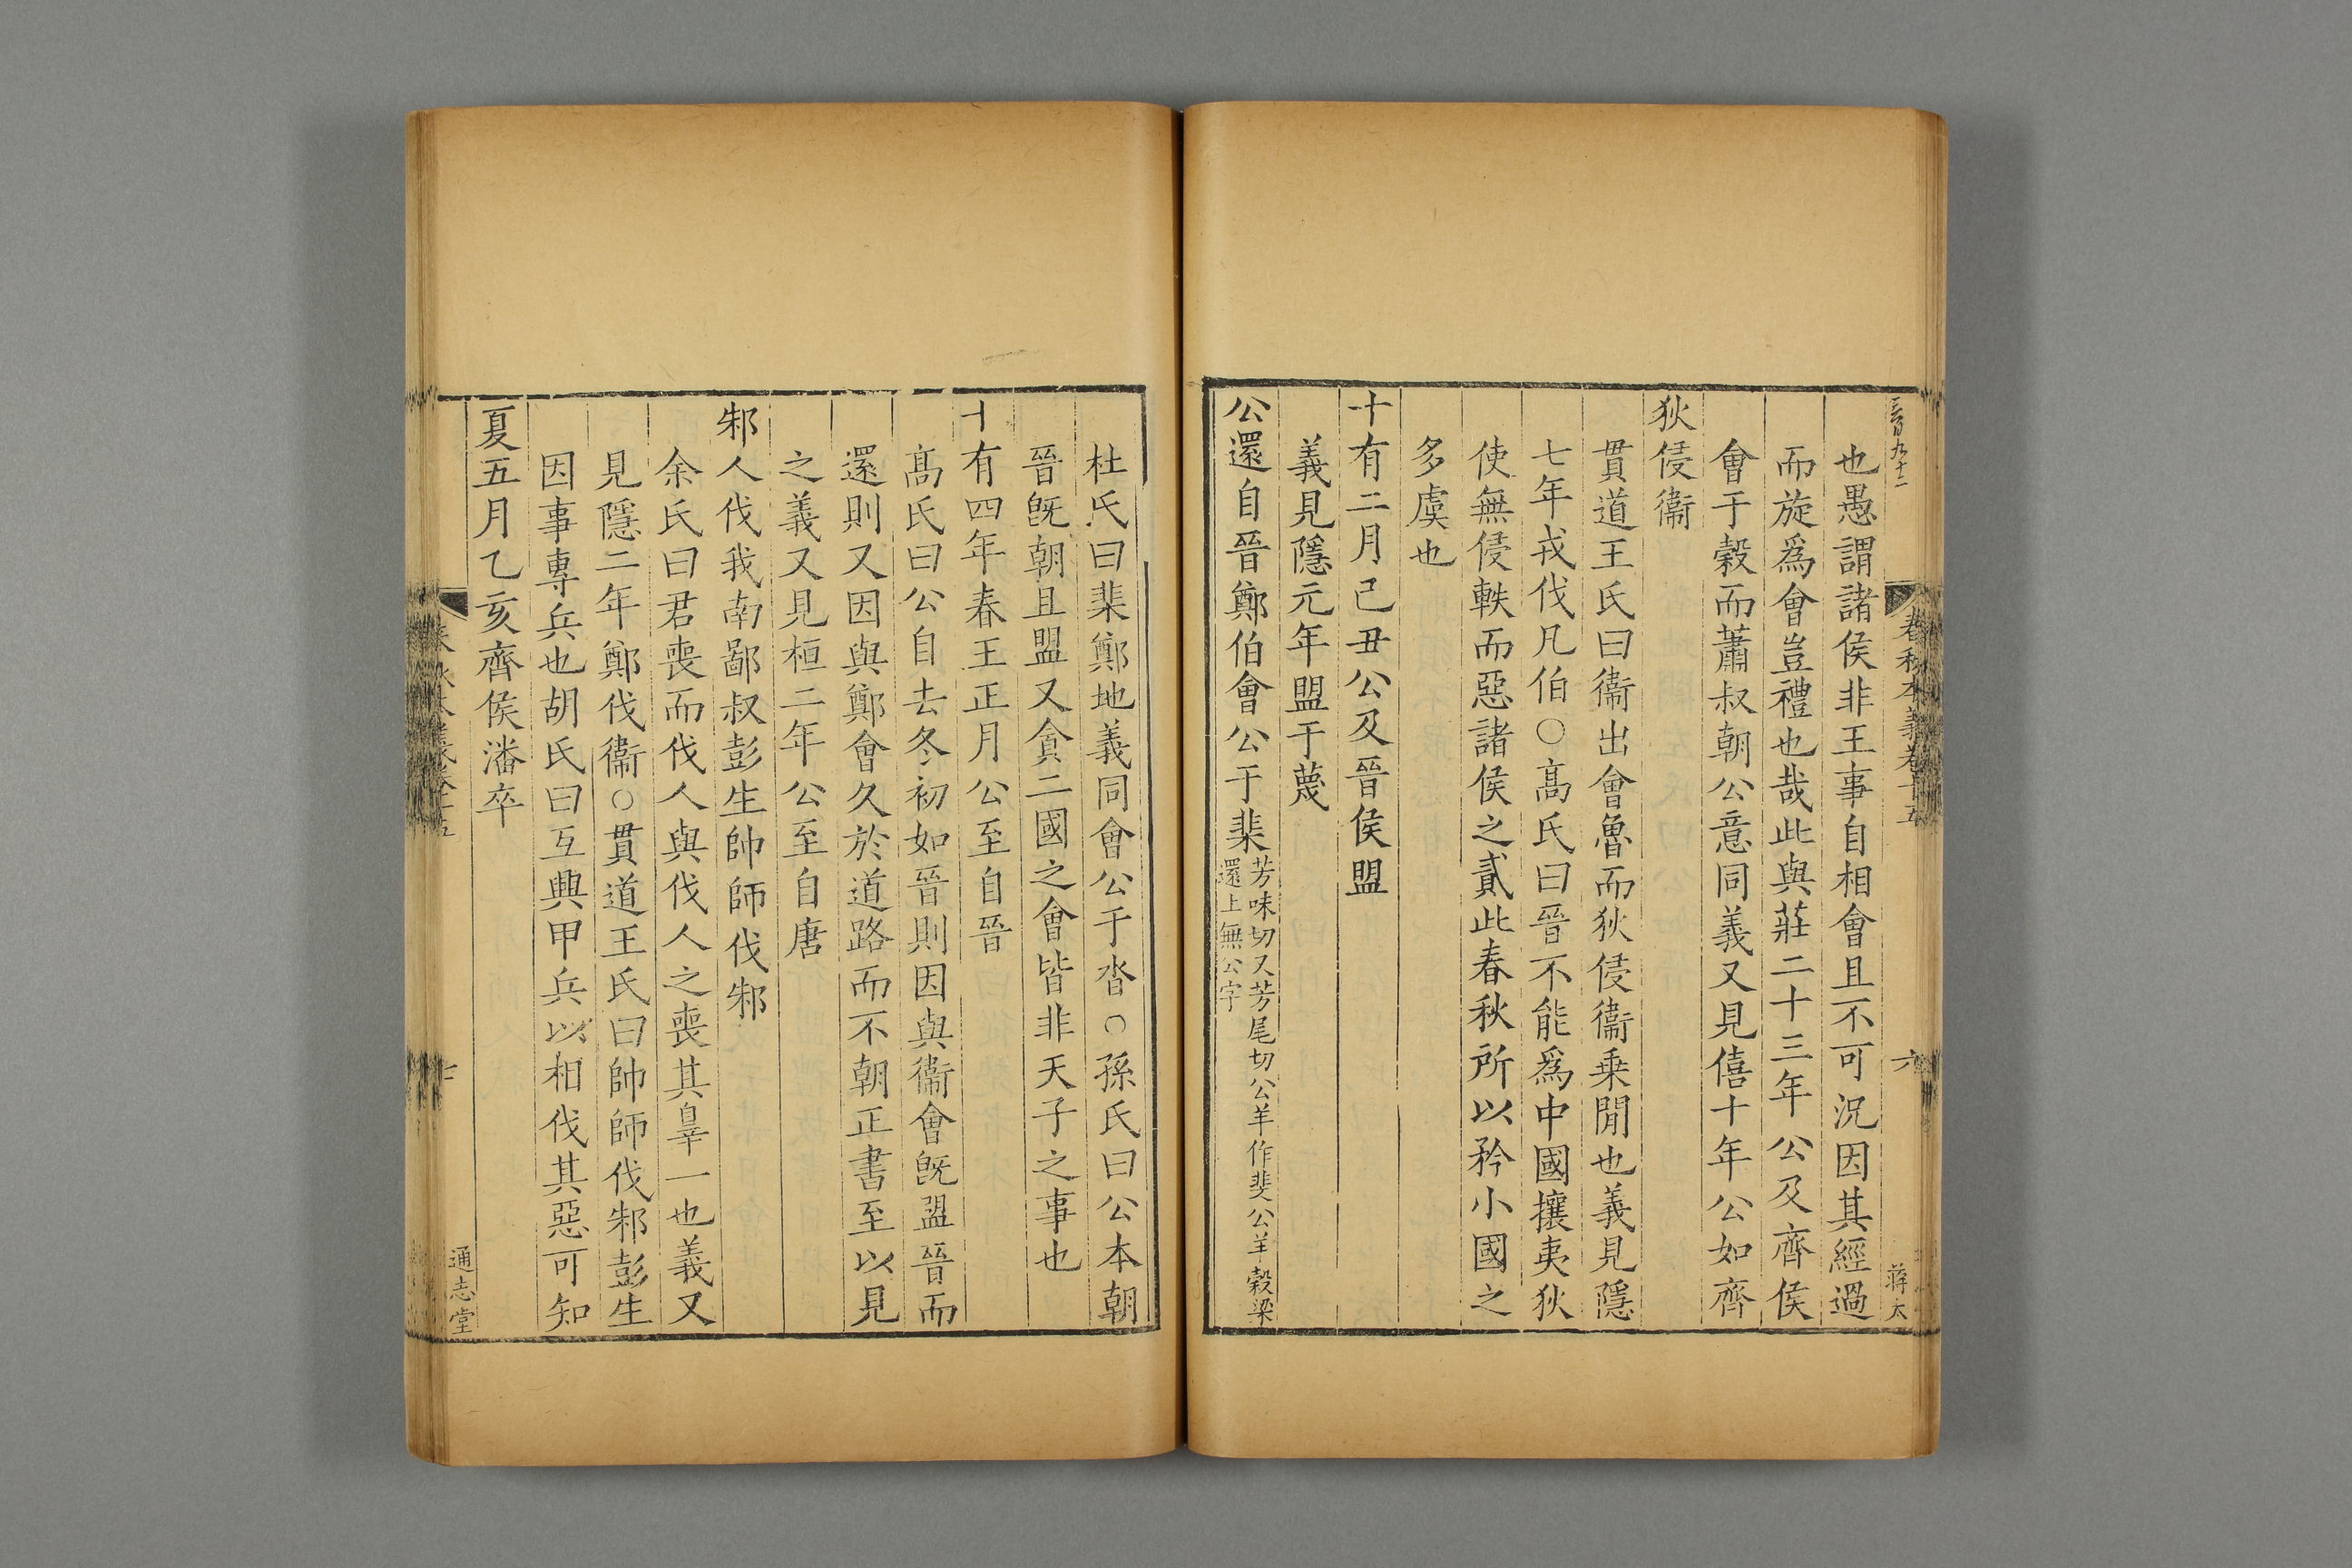 春秋本義卷十五
六
蔣太
也愚謂諸侯非王事自相會且不可況因其經過
而旋爲會豈禮也哉此與莊二十三年公及齊侯
會于穀而蕭叔朝公意同義又見僖十年公如齊
狄侵衞
貫道王氏曰衞出會魯而狄侵衞乗閒也義見隱
七年戎伐凡伯○髙氏曰晉不能爲中國攘夷狄
使無侵軼而惡諸侯之貳此春秋所以矜小國之
多虞也
十有二月己丑公及晉侯盟
義見隱元年盟于蔑
公還自晉鄭伯會公于棐芳味切又芳尾切公羊作斐公羊穀梁
還上無公字
杜氏曰棐鄭地義同會公于沓○孫氏曰公本朝
晉旣朝且盟又貪二國之會皆非天子之事也
十有四年春王正月公至自晉
髙氏曰公自去冬初如晉則因與衞會旣盟晉而
還則又因與鄭會久於道路而不朝正書至以見
之義又見桓二年公至自唐
邾人伐我南鄙叔彭生帥師伐邾
余氏曰君喪而伐人與伐人之喪其辠一也義又
見隱二年鄭伐衞○貫道王氏曰帥師伐邾彭生
因事專兵也胡氏曰互興甲兵以相伐其惡可知
夏五月乙亥齊侯潘卒
七
通志堂